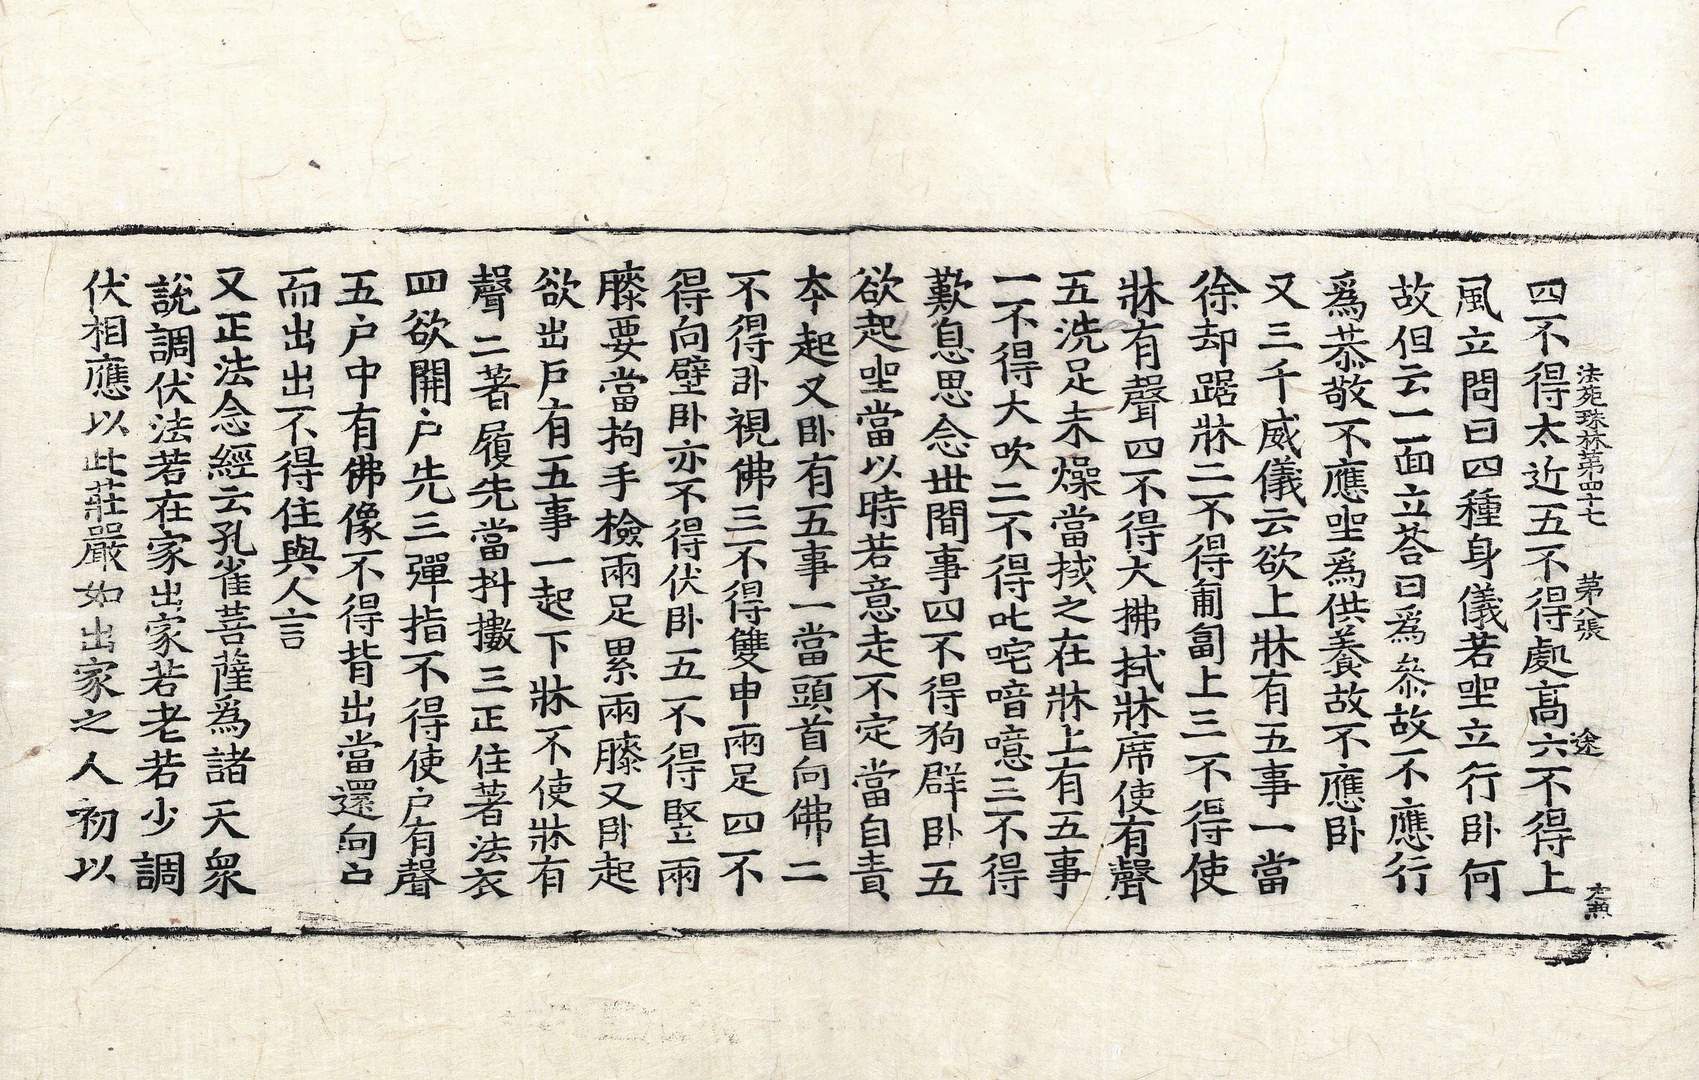 法苑珠林第四十七 第八張 途
四不得太近五不得處高六不得上
風立問曰四種身儀若坐立行卧何
故但云一面立荅曰爲恭故不應行
爲恭敬不應坐爲供養故不應卧
又三千威儀云欲上牀有五事一當
徐却踞牀二不得匍匐上三不得使
牀有聲四不得大拂拭牀席使有聲
五洗足未燥當拭之在牀上有五事
一不得大吹二不得叱咤喑噫三不得
歎息思念世間事四不得狗群卧五
欲起坐當以時若意走不定當自責
本起又卧有五事一當頭首向佛二
不得卧視佛三不得雙申兩足四不
得向壁卧亦不得伏卧五不得竪兩
膝要當拘手檢兩足累兩膝又卧起
欲出戶有五事一起下牀不使牀有
聲二著履先當抖擻三正住著法衣
四欲開戶先三彈指不得使戶有聲
五戶中有佛像不得背出當還向占
而出出不得住與人言
又正法念經云孔雀菩薩爲諸天衆
說調伏法若在家出家若老若少調
伏相應以此莊嚴如出家之人初以